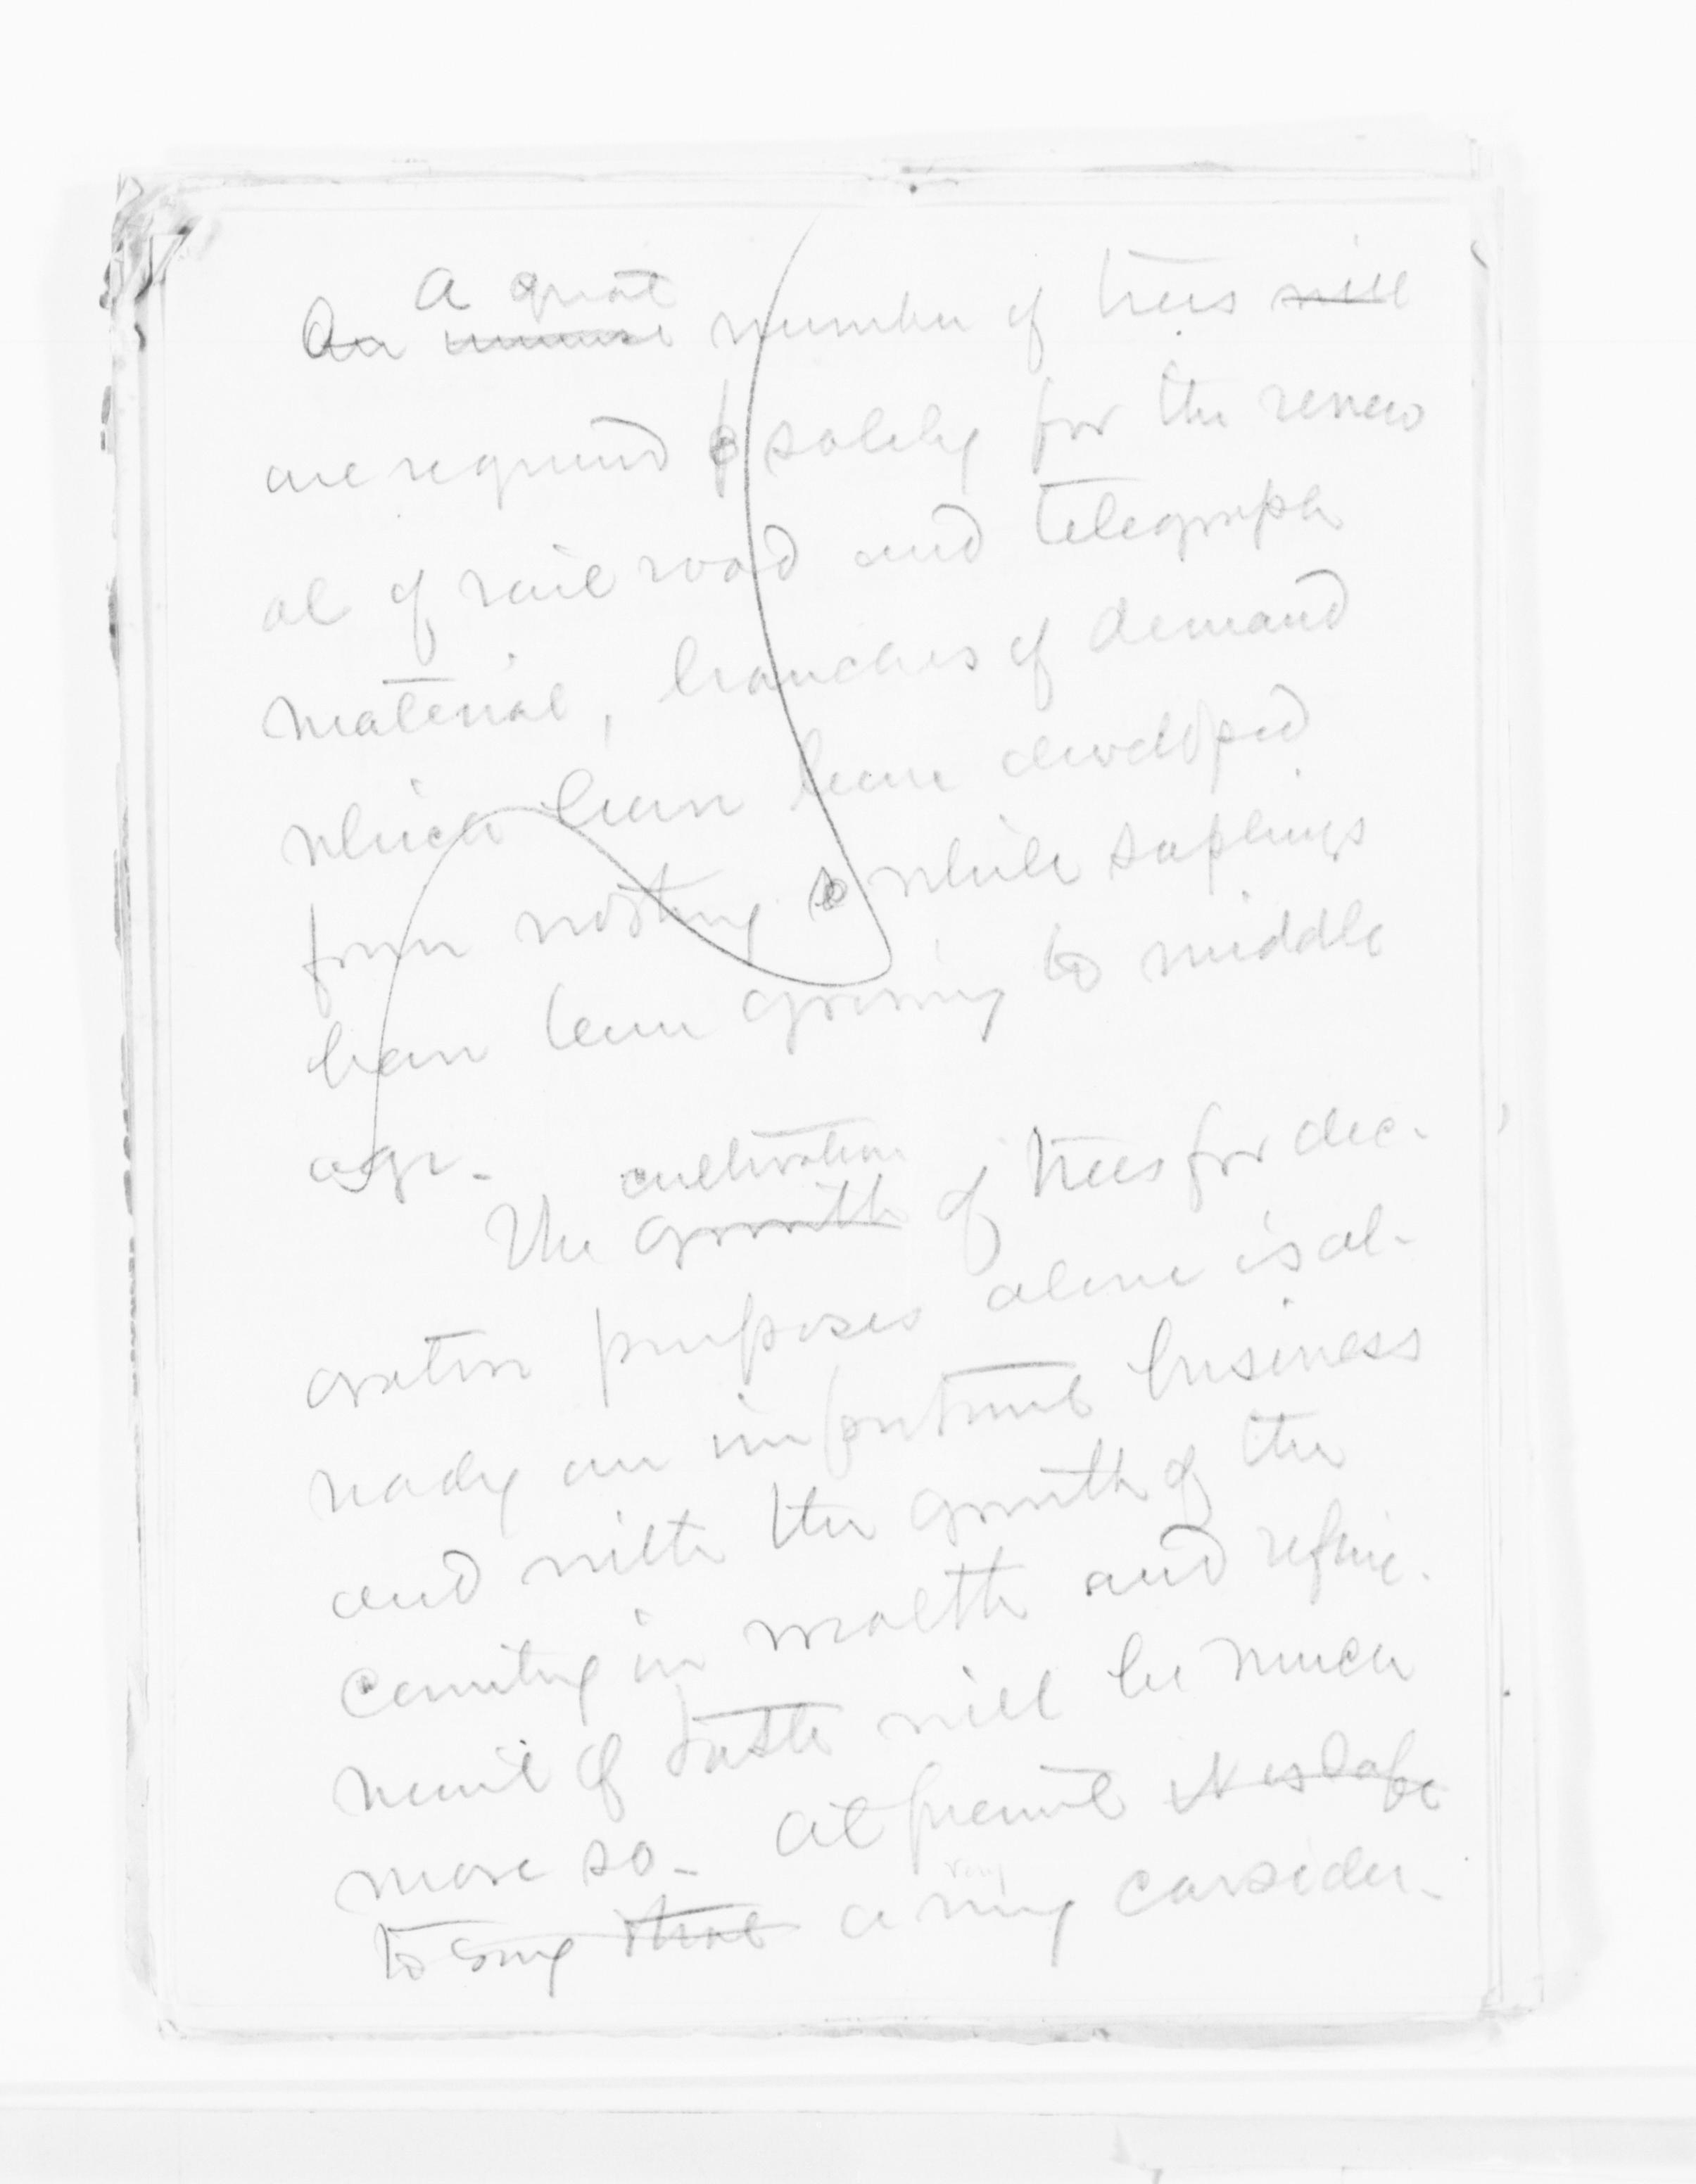 A great
An immense number of trees will
are required solely for the renew
al of rail road and telegraph
material, branches of demand
which have been developed
from nothing while saplings
have been growing to middle
age.
cultivation
The growth of trees for dec-
orative purposes alone is al-
ready an important business
and with the growth of the
country in wealth and refine-
ment of taste will be much
more so. At present it is safe
very
to say that a very consider-